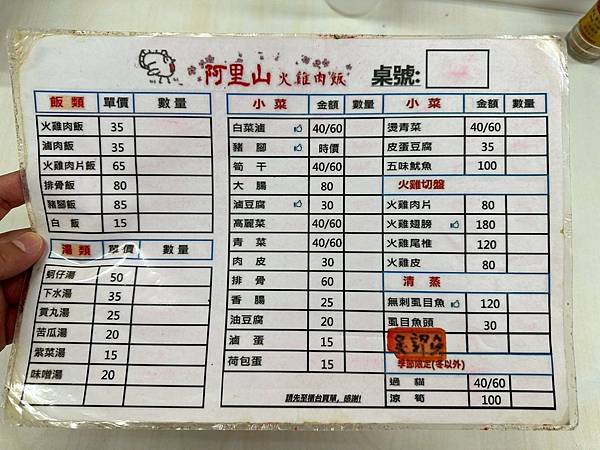 阿里山火雞肉飯 桌號:
飯類 單價 數量
火雞肉飯 35
滷肉飯 35
火雞肉片飯 65
排骨飯 80
豬腳飯 85
白飯 15
湯類 單價 數量
蚵仔湯 50
下水湯 35
貢丸湯 25
苦瓜湯 20
紫菜湯 15
味噌湯 20
小菜 金額 數量
白菜滷 40/60
豬腳 時價
筍干 40/60
大腸 80
滷豆腐 30
高麗菜 40/60
青菜 40/60
肉皮 30
排骨 60
香腸 25
油豆腐 20
滷蛋 15
荷包蛋 15
請先至櫃台買單,感謝!
小菜 金額 數量
燙青菜 40/60
皮蛋豆腐 35
五味魷魚 100
火雞切盤
火雞肉片 80
火雞翅膀 180
火雞尾椎 120
火雞皮 80
清蒸
無刺虱目魚 120
虱目魚頭 30
季節限定(冬以外)
過貓 40/60
涼筍 100